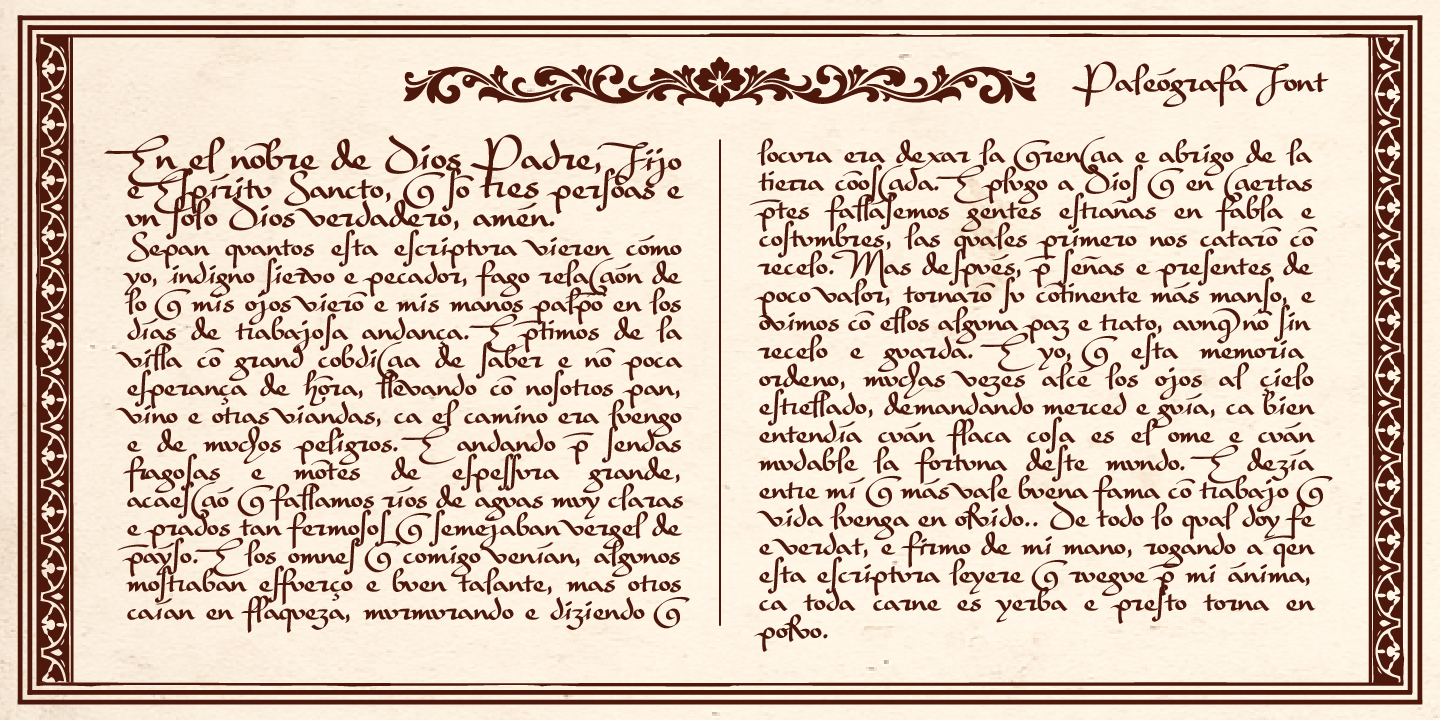 En el nōbre de Dios Padre, Fijo
e Eſpíritv Sancto, q̃ sō tres perſōas e
vn ſolo Dios verdadero, amén.
Sepan qvantos eſta eſcriptvra vieren cómo
yo, indigno ſiervo e pecador, fago relación de
lo q̃ mis ojos vierō e mis manos palpō en los
días de trabajoſa andança. E p̄timos de la
villa cō grand cobdicia de ſaber e nō poca
eſperança de hōra, llevando cō noſotros pan,
vino e otras viandas, ca el camino era lvengo
e de mvchos peligros. E andando p̄ ſendas
fragoſas e mōtes de eſpeſſvra grande,
acaeſció q̃ fallamos ríos de agvas mvy claras
e prados tan fermoſoſ q̃ ſemejaban vergel de
p̄ayſo. E los omneſ q̃ comigo venían, algvnos
moſtraban eſfverço e bven talante, mas otros
caían en flaqveza, mvrmvrando e diziendo q̃
locvra era dexar la q̃rencia e abrigo de la
tierra cōoſcida. E plvgo a Dioſ q̃ en ciertas
p̄tes fallaſemos gentes eſtrañas en fabla e
coſtvmbres, las qvales primero nos catarō cō
recelo. Mas deſpvés, p̄ ſeñas e preſentes de
poco valor, tornarō ſv cōtinente más manſo, e
ovimos cō ellos algvna paz e trato, avnq̃ nō ſin
recelo e gvarda. E yo, q̃ eſta memoria
ordeno, mvchas vezes alcé los ojos al çielo
eſtrellado, demandando merced e gvía, ca bien
entendía cván flaca coſa es el ome e cván
mvdable la fortvna deſte mvndo. E dezía
entre mí q̃ más vale bvena fama cō trabajo q̃
vida lvenga en olvido.. De todo lo qval doy fe
e verdat, e firmo de mi mano, rogando a q̄en
eſta eſcriptvra leyere q̃ rvegve p̄ mi ánima,
ca toda carne es yerba e preſto torna en
polvo.
Paleógrafa Font